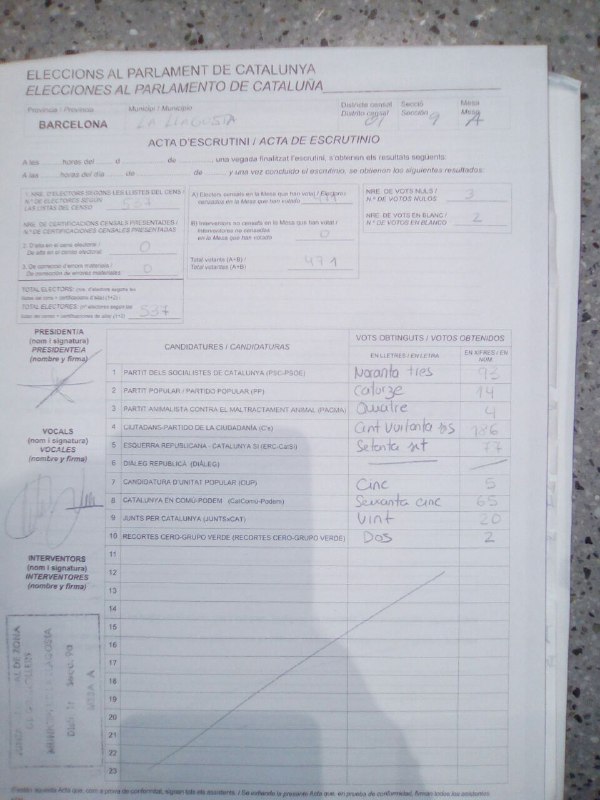 ELECCIONS AL PARLAMENT DE CATALUNYA
ELECCIONES AL PARLAMENTO DE CATALUÑA
Província / Provincia
Municipi / Municipio
Districte censal
Distrito censal
Secció
Sección
Mesa
Mesa
BARCELONA
LA LLAGOSTA
01
9
A
ACTA D'ESCRUTINI / ACTA DE ESCRUTINIO
A les ......... hores del ..... d ............... de ........., una vegada finalitzat l'escrutini, s'obtenen els resultats següents:
A las ......... horas del día ..... de ............... de ......... y una vez concluido el escrutinio, se obtienen los siguientes resultados:
1. NRE. D'ELECTORS SEGONS LES LLISTES DEL CENS /
N.º DE ELECTORES SEGÚN
LAS LISTAS DEL CENSO
537
NRE. DE CERTIFICACIONS CENSALS PRESENTADES /
N.º DE CERTIFICACIONES CENSALES PRESENTADAS
2. D'alta en el cens electoral /
De alta en el censo electoral
0
3. De correcció d'errors materials /
De corrección de errores materiales
0
TOTAL ELECTORS: (nre. d'electors segons les
llistes del cens + certificacions d'alta) (1+2) /
TOTAL ELECTORES: (nº electores según las
listas del censo + certificaciones de alta) (1+2)
537
A) Electors censats en la Mesa que han votat / Electores
censados en la Mesa que han votado
471
B) Interventors no censats en la Mesa que han votat /
Interventores no censados
en la Mesa que han votado
0
Total votants (A+B) /
Total votantes (A+B)
471
NRE. DE VOTS NULS /
N.º DE VOTOS NULOS
3
NRE. DE VOTS EN BLANC /
N.º DE VOTOS EN BLANCO
2
PRESIDENT/A
(nom i signatura)
PRESIDENTE/A
(nombre y firma)
VOCALS
(nom i signatura)
VOCALES
(nombre y firma)
INTERVENTORS
(nom i signatura)
INTERVENTORES
(nombre y firma)
CANDIDATURES / CANDIDATURAS
VOTS OBTINGUTS / VOTOS OBTENIDOS
EN LLETRES / EN LETRA
EN XIFRES / EN NÚM.
1 PARTIT DELS SOCIALISTES DE CATALUNYA (PSC-PSOE) Noranta tres 93
2 PARTIT POPULAR / PARTIDO POPULAR (PP) Catorze 14
3 PARTIT ANIMALISTA CONTRA EL MALTRACTAMENT ANIMAL (PACMA) Quatre 4
4 CIUTADANS-PARTIDO DE LA CIUDADANÍA (C's) Cent Vuitanta sis 186
5 ESQUERRA REPUBLICANA - CATALUNYA SÍ (ERC-CatSí) Setanta set 77
6 DIÀLEG REPUBLICÀ (DIÀLEG)
7 CANDIDATURA D'UNITAT POPULAR (CUP) Cinc 5
8 CATALUNYA EN COMÚ-PODEM (CatComú-Podem) Seixanta cinc 65
9 JUNTS PER CATALUNYA (JUNTSxCAT) Vint 20
10 RECORTES CERO-GRUPO VERDE (RECORTES CERO-GRUPO VERDE) Dos 2
11
12
13
14
15
16
17
18
19
20
21
22
23
MESA A